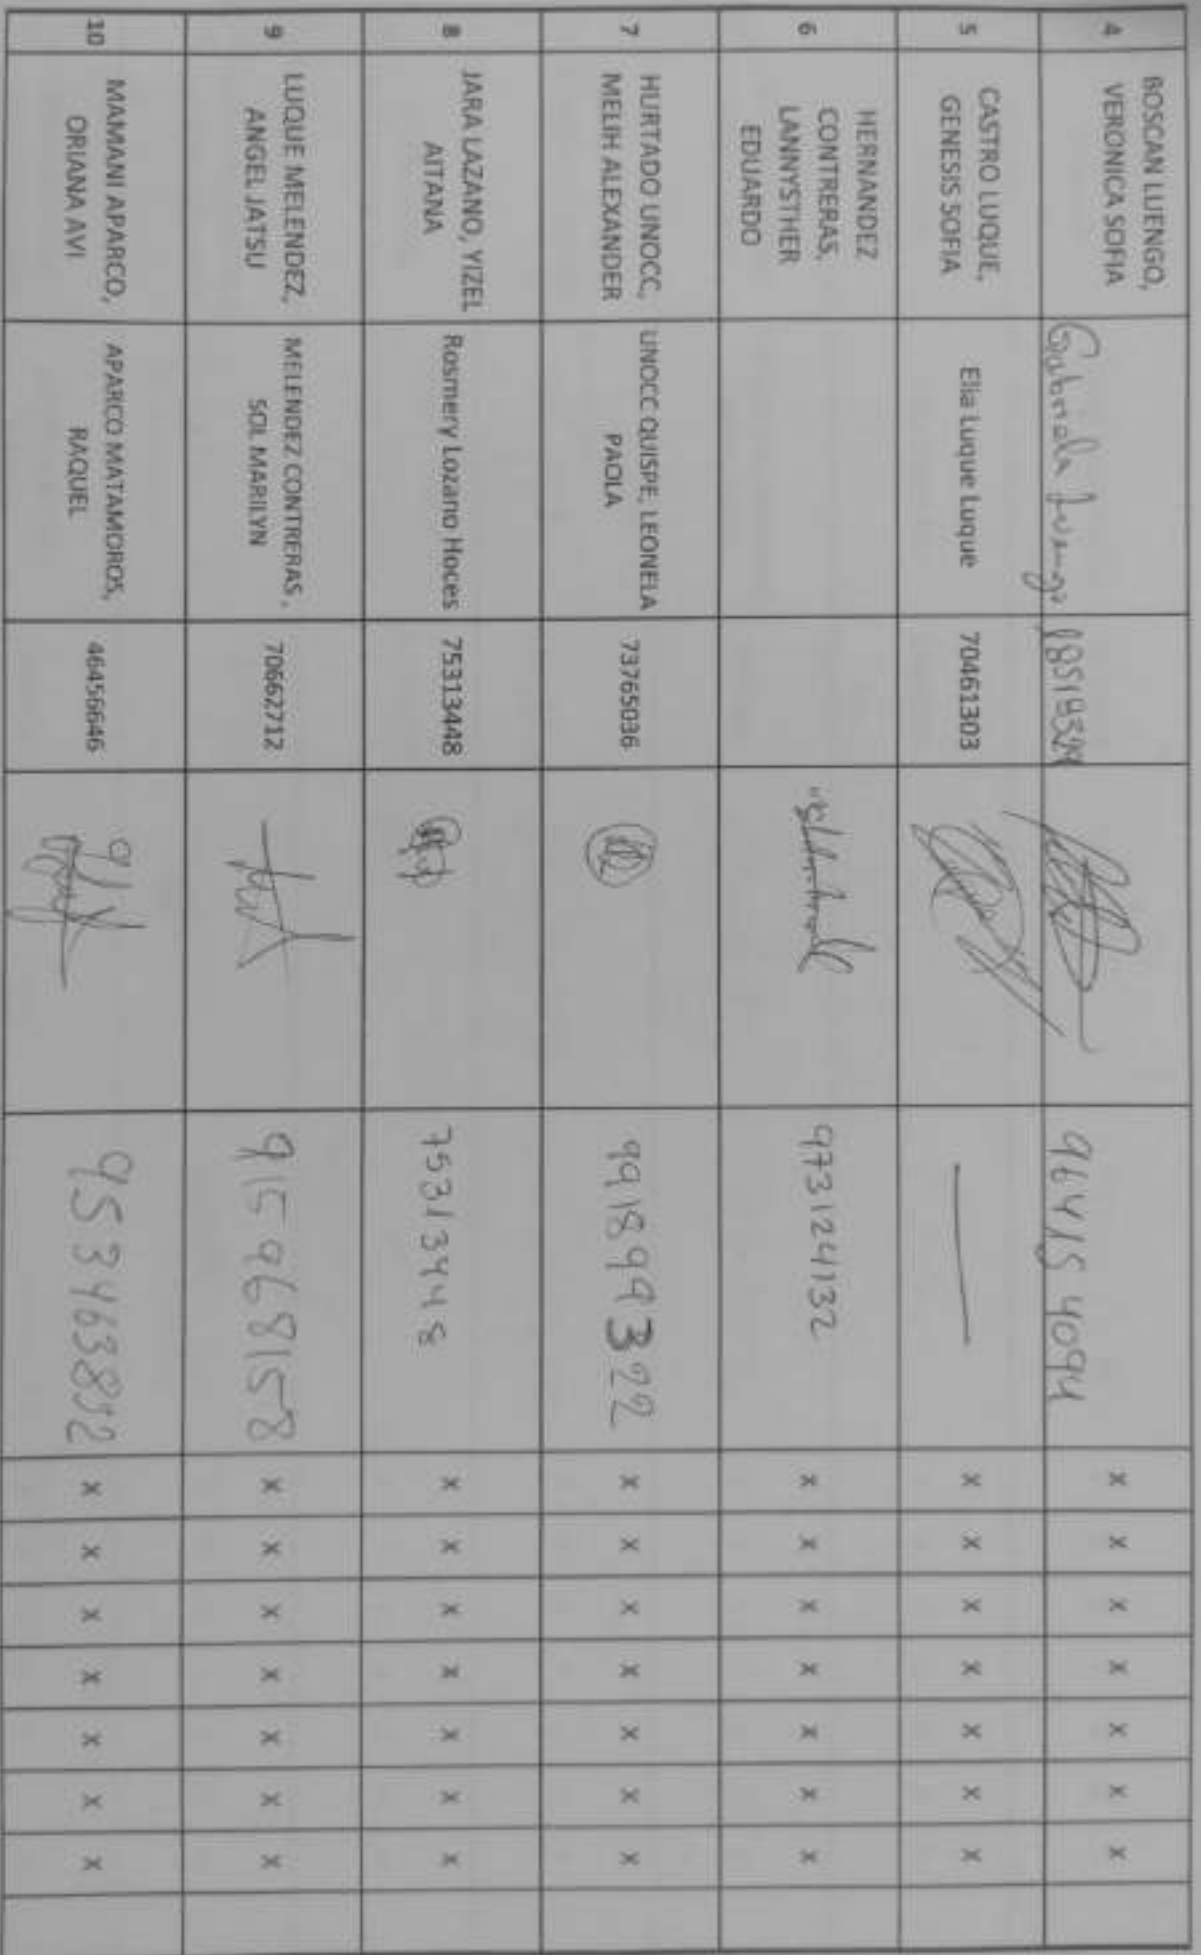 4
BOSCAN LUENGO,
VERONICA SOFIA
Gabriela Luengo
96415 4094
x x x x x x x
5
CASTRO LUQUE,
GENESIS SOFIA
Elia Luque Luque
70461303
—
x x x x x x x
6
HERNANDEZ
CONTRERAS,
LANNYSTHER
EDUARDO
973124132
x x x x x x x
7
HURTADO UNOCC,
MELIH ALEXANDER
UNOCC QUISPE, LEONELA
PAOLA
73765036
991899322
x x x x x x x
8
JARA LAZANO, YIZEL
AITANA
Rosmery Lozano Hoces
75313448
75313448
x x x x x x x
9
LUQUE MELENDEZ,
ANGEL JATSU
MELENDEZ CONTRERAS ,
SOL MARILYN
70662712
915968158
x x x x x x x
10
MAMANI APARCO,
ORIANA AVI
APARCO MATAMOROS,
RAQUEL
46456646
953463892
x x x x x x x